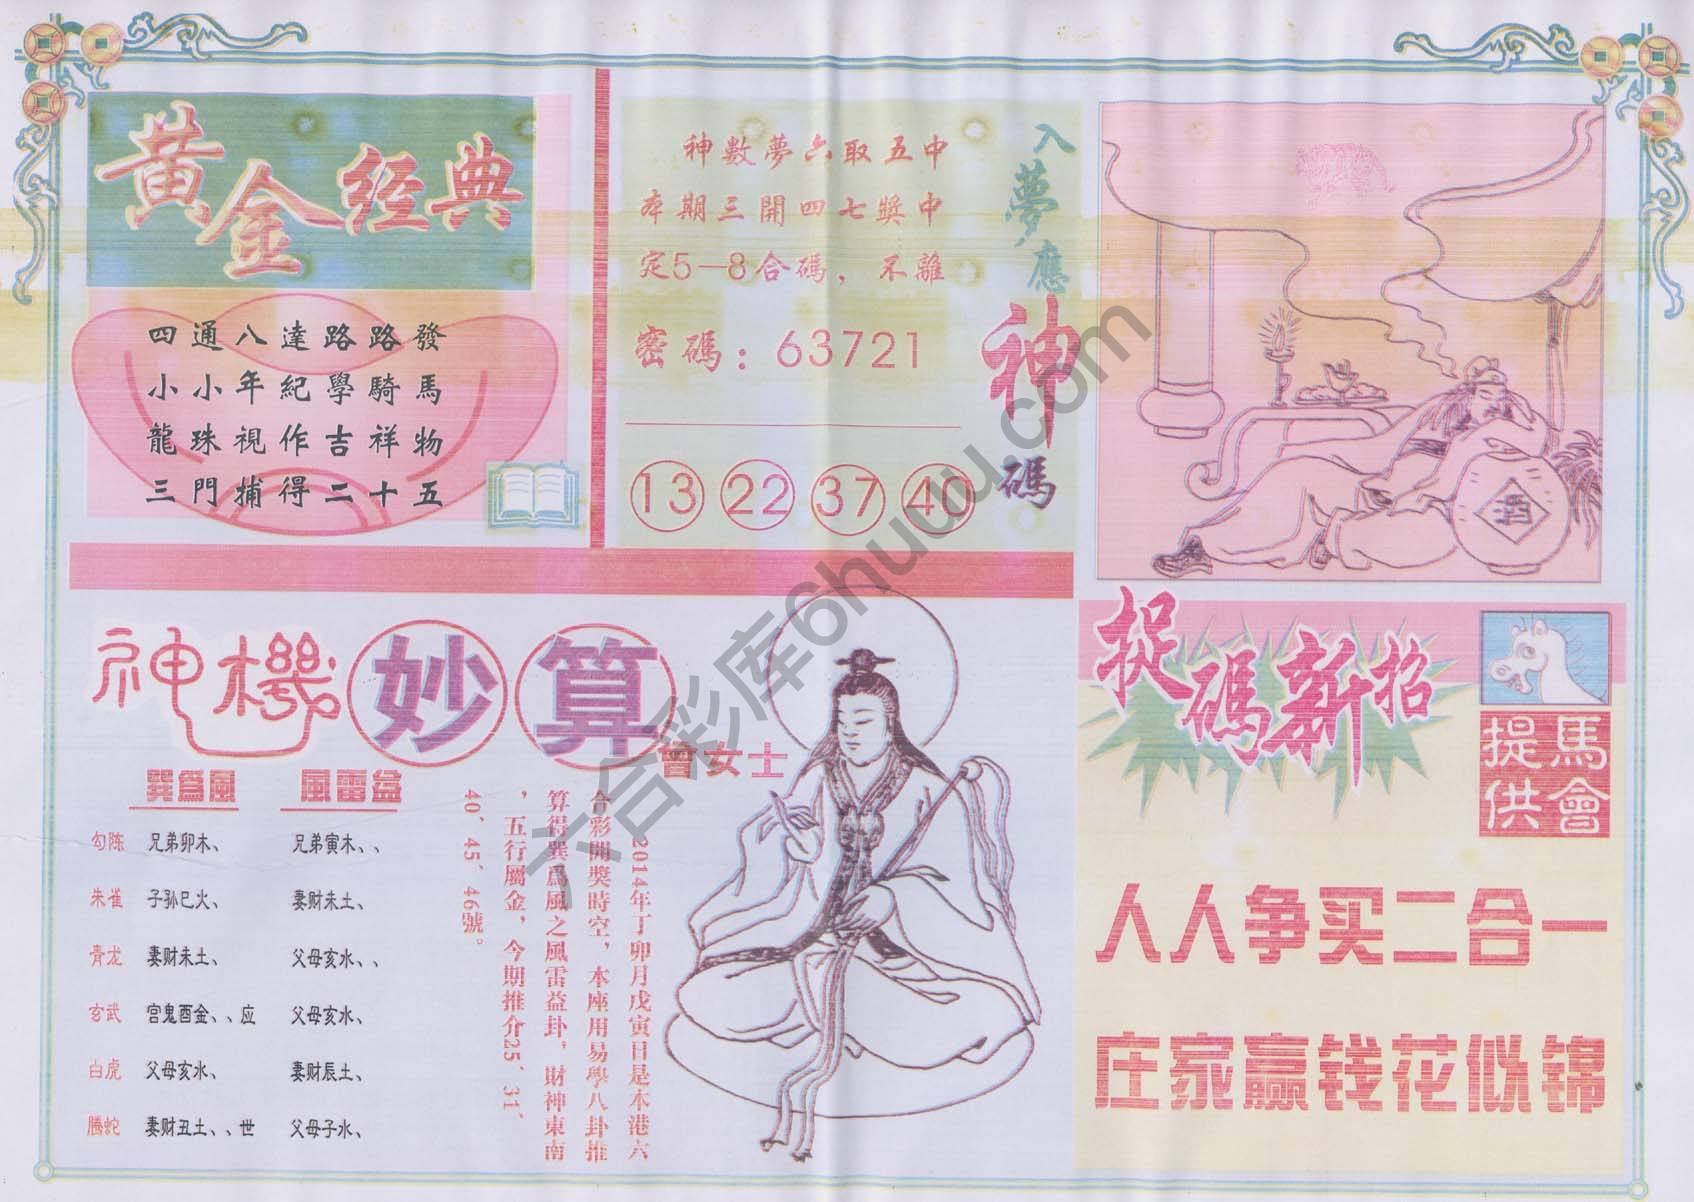 黃金经典
四通八達路路發
小小年紀學騎馬
龍珠視作吉祥物
三門捕得二十五
神數夢六取五中
本期三開四七獎中
定5—8合碼，不離
密碼：63721
13 22 37 40
入夢應神碼
酒
神機妙算
曾女士
巽爲風 風雷益
勾陈 兄弟卯木、 兄弟寅木、、
朱雀 子孙巳火、 妻财未土、
青龙 妻财未土、 父母亥水、、
玄武 官鬼酉金、、应 父母亥水、
白虎 父母亥水、 妻财辰土、
腾蛇 妻财丑土、、世 父母子水、
2014年丁卯月戊寅日是本港六
合彩開獎時空，本座用易學八卦推
算得巽爲風之風雷益卦，財神東南
，五行屬金，今期推介25、31、
40、45、46號。
捉碼新招
馬會
提供
人人争买二合一
庄家赢钱花似锦
六合彩库6huwu.com